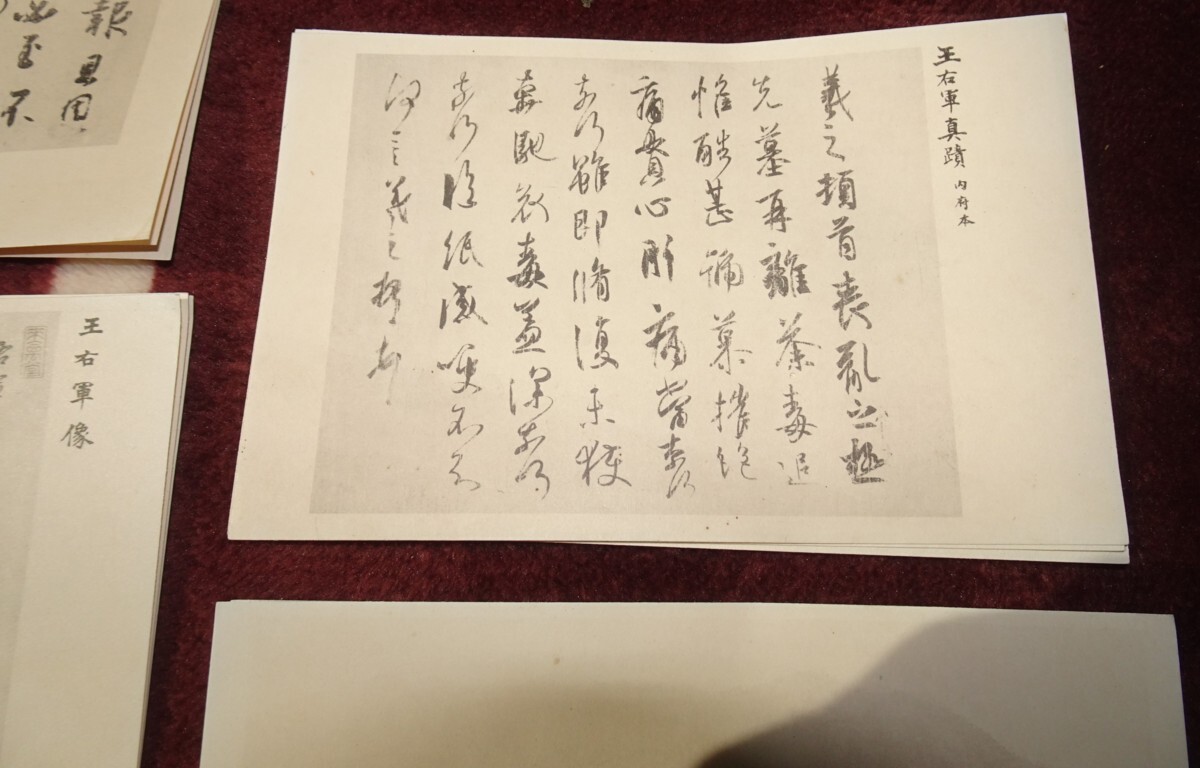 王右軍真蹟 內府本
羲之頓首喪亂之極
先墓再離荼毒追
惟酷甚號慕摧絕
痛貫心肝痛當奈何
奈何雖即脩復未獲
奔馳哀毒益深奈何
奈何臨紙感哽不知
何言羲之頓首頓首
王右軍像
報
至不